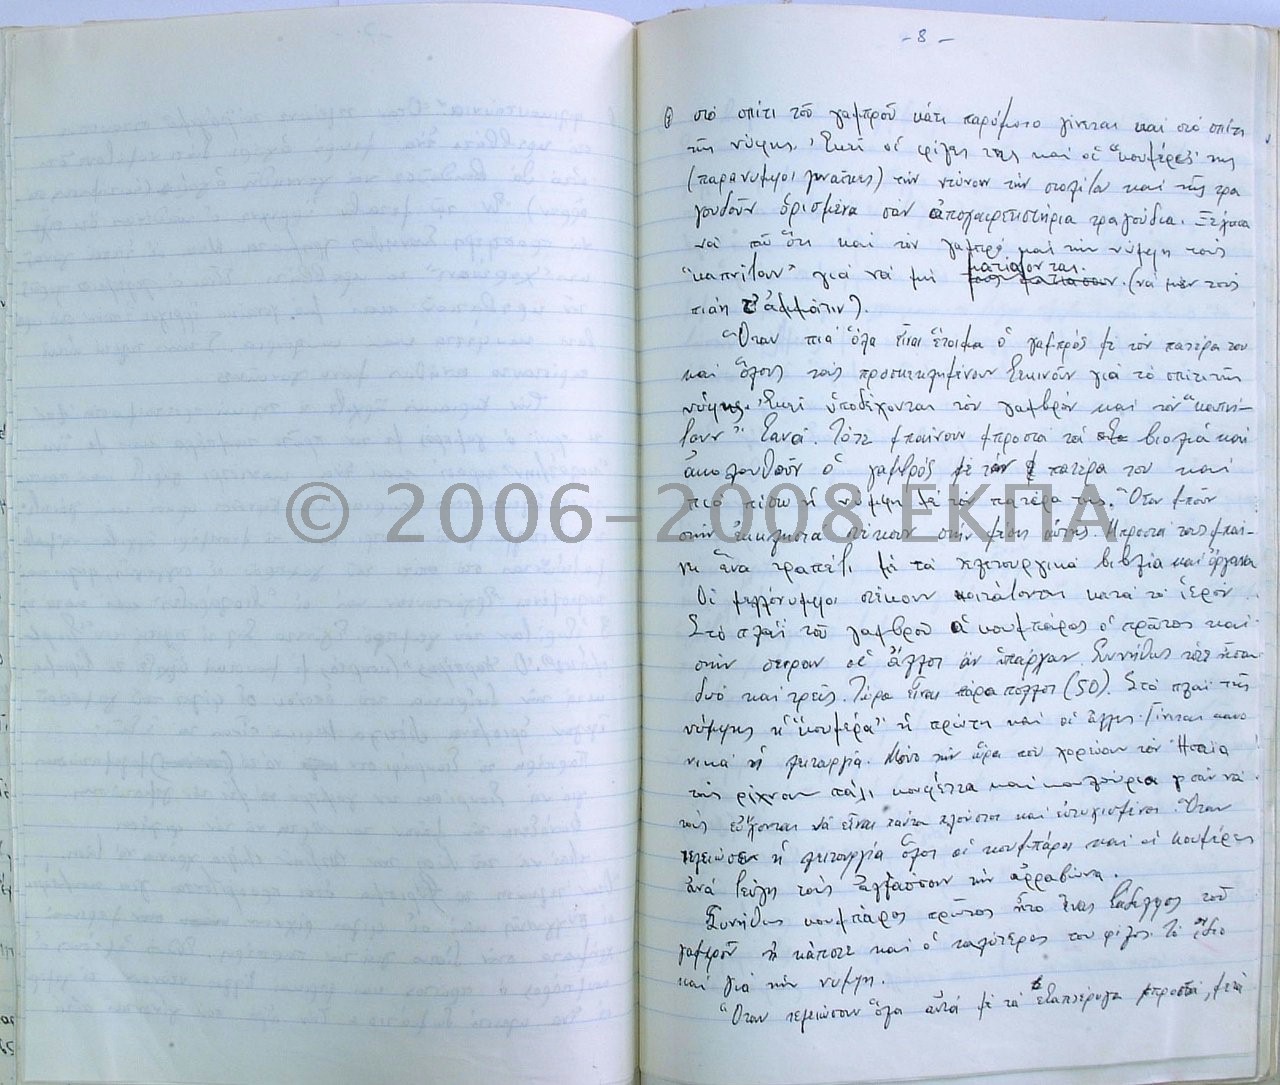 - 8 -
στὸ σπίτι τοῦ γαμπροῦ κάτι παρόμοιο γίνεται καὶ στὸ σπίτι
τῆς νύφης. Ἐκεῖ οἱ φίλες της καὶ οἱ "κουμέρες" της
(παρανυμφοι γυναῖκες) τὴν ντύνουν τὴν στολίζουν καὶ τῆς τρα
γουδοῦν ὁρισμένα σὰν ἀποχαιρετιστήρια τραγούδια. Ξέχασα
νὰ πῶ ὅτι καὶ τὸν γαμπρό καὶ τὴν νύμφη τοὺς
"καπνίζουν" γιὰ νὰ μὴ ματιάζονται. (νὰ μὲν τοὺς
πιάη τ'ἀμμάτιν).
Ὅταν πιὰ ὅλα εἶναι ἕτοιμα ὁ γαμπρός μὲ τὸν πατέρα του
καὶ ὅλους τοὺς προσκεκλημένους ξεκινοῦν γιὰ τὸ σπίτι τῆς
νύφης. Ἐκεῖ ὑποδέχονται τὸν γαμβρόν καὶ τὸν "καπνί-
ζουν" ξανά. Τότε μπαίνουν μπροστὰ τὰ βιολιά καὶ
ἀκολουθοῦν ὁ γαμβρός μὲ τὸν πατέρα του καὶ
πιὸ πίσω ἡ νύμφη μὲ τὸν πατέρα της. Ὅταν μποῦν
© 2006-2008 ΕΚΠΑ
στὴν ἐκκλησία στέκουν στὴν μέση αὐτῆς. Μπροστὰ τους μπαί-
νει ἕνα τραπέζι μὲ τὰ λειτουργικὰ βιβλία καὶ ὄργανα
Οἱ μελλόνυμφοι στέκουν κοιτάζοντας κατὰ τὸ ἱερόν
Στὸ πλάϊ τοῦ γαμβροῦ ὁ κουμπάρος ὁ πρῶτος καὶ
στὴν σειρὰν οἱ ἄλλοι ἂν ὑπάρχουν. Συνήθως τότε ἦσαν
δυὸ καὶ τρεῖς. Τώρα εἶναι πάρα πολλοί (50). Στὸ πλάϊ τῆς
νύμφης ἡ "κουμέρα" ἡ πρώτη καὶ οἱ ἄλλες. Γίνεται κανο
νικὰ ἡ λειτουργία. Μόνο τὴν ὥρα ποὺ χορεύουν τὸν Ἡσαΐα
τοὺς ρίχνουν πάλι κουφέττα καὶ κουλούρια σὰν νὰ
τοὺς εὔχονται νὰ εἶναι πάντα πλούσιοι καὶ εὐτυχισμένοι. Ὅταν
τελειώσει ἡ λειτουργία ὅλοι οἱ κουμπάροι καὶ οἱ κουμέρες
ἀνὰ ζεύγη τοὺς ἀλλάσσουν τὴν ἀρραβώνα.
Συνήθως κουμπάρος πρῶτος ἦτο ἕνας ἐξάδελφος τοῦ
γαμβροῦ ἢ κάποτε καὶ ὁ καλύτερος του φίλος. Τὸ ἴδιο
καὶ γιὰ τὴν νύμφη.
Ὅταν τελειώσουν ὅλα αὐτὰ μὲ τὰ ἑξαπτέρυγα μπροστά, μετὰ